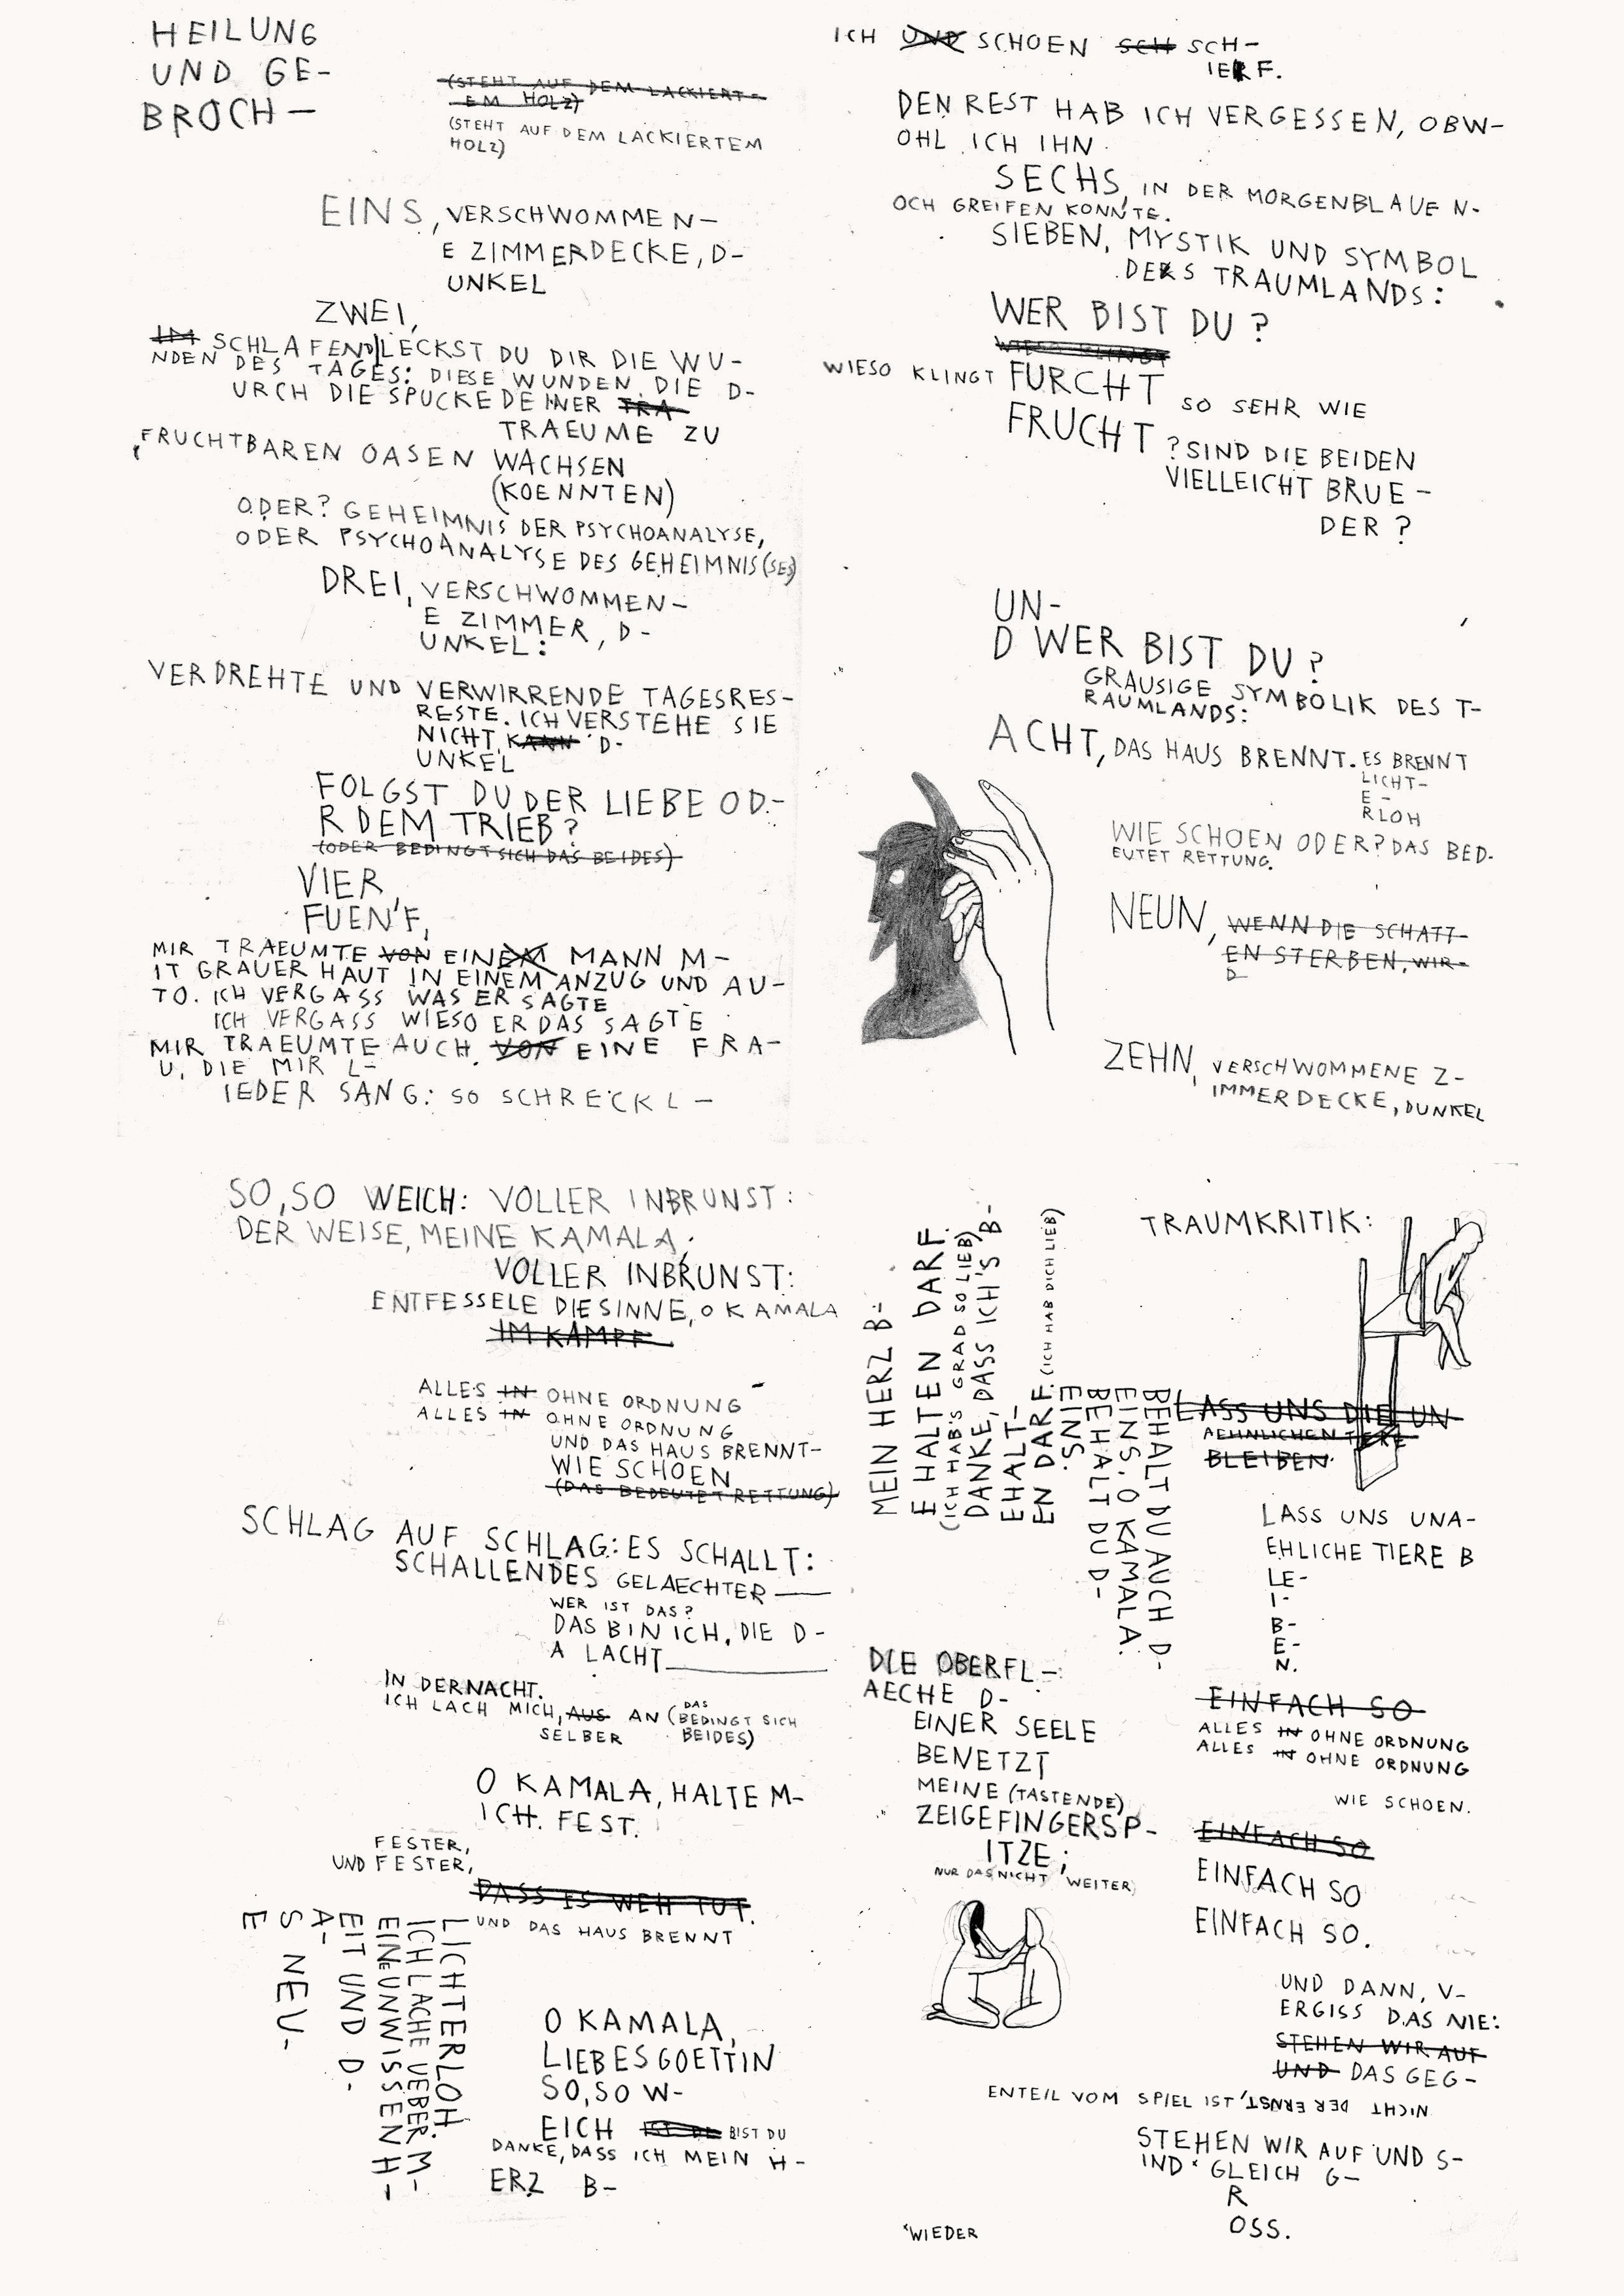 HEILUNG
UND GE-
BROCH—
(STEHT AUF DEM LACKIERT-
EM HOLZ)
(STEHT AUF DEM LACKIERTEM
HOLZ)
EINS, VERSCHWOMMEN-
E ZIMMERDECKE, D-
UNKEL
ZWEI,
IM SCHLAFEND LECKST DU DIR DIE WU-
NDEN DES TAGES: DIESE WUNDEN DIE D-
URCH DIE SPUCKE DEINER TRA
TRAEUME ZU
FRUCHTBAREN OASEN WACHSEN
(KOENNTEN)
ODER? GEHEIMNIS DER PSYCHOANALYSE,
ODER PSYCHOANALYSE DES GEHEIMNIS(SES)
DREI, VERSCHWOMMEN-
E ZIMMER, D-
UNKEL:
VERDREHTE UND VERWIRRENDE TAGESRES-
RESTE. ICH VERSTEHE SIE
NICHT, KANN D-
UNKEL
FOLGST DU DER LIEBE OD-
R DEM TRIEB?
(ODER BEDINGT SICH DAS BEIDES)
VIER,
FUENF,
MIR TRAEUMTE VON EINEM MANN M-
IT GRAUER HAUT IN EINEM ANZUG UND AU-
TO. ICH VERGASS WAS ER SAGTE
ICH VERGASS WIESO ER DAS SAGTE
MIR TRAEUMTE AUCH VON EINE FRA-
U, DIE MIR L-
IEDER SANG: SO SCHRECKL—
ICH UND SCHOEN SCH SCH-
IERF.
DEN REST HAB ICH VERGESSEN, OBW-
OHL ICH IHN
SECHS, IN DER MORGENBLAUE N-
OCH GREIFEN KONNTE.
SIEBEN, MYSTIK UND SYMBOL
DES TRAUMLANDS:
WER BIST DU?
WIESO KLINGT
WIESO KLINGT FURCHT SO SEHR WIE
FRUCHT? SIND DIE BEIDEN
VIELLEICHT BRUE-
DER?
UN-
D WER BIST DU?
GRAUSIGE SYMBOLIK DES T-
RAUMLANDS:
ACHT, DAS HAUS BRENNT. ES BRENNT
LICHT-
E-
RLOH
WIE SCHOEN ODER? DAS BED-
EUTET RETTUNG.
NEUN, WENN DIE SCHATT-
EN STERBEN, WIR-
D
ZEHN, VERSCHWOMMENE Z-
IMMERDECKE, DUNKEL
SO, SO WEICH: VOLLER INBRUNST:
DER WEISE, MEINE KAMALA;
VOLLER INBRUNST:
ENTFESSELE DIE SINNE, O KAMALA
IM KAMPF
ALLES IN OHNE ORDNUNG
ALLES IN OHNE ORDNUNG
UND DAS HAUS BRENNT-
WIE SCHOEN
(DAS BEDEUTET RETTUNG)
SCHLAG AUF SCHLAG: ES SCHALLT:
SCHALLENDES GELAECHTER —
WER IST DAS?
DAS BIN ICH, DIE D-
A LACHT
IN DER NACHT.
ICH LACH MICH, AUS AN (DAS BEDINGT SICH
SELBER BEIDES)
O KAMALA, HALTE M-
ICH. FEST.
FESTER,
UND FESTER,
DASS ES WEH TUT.
UND DAS HAUS BRENNT
LICHTERLOH.
ICH LACHE UEBER M-
EINE UNWISSENH-
EIT UND D-
A-
S NEU-
E
O KAMALA,
LIEBESGOETTIN
SO, SO W-
EICH IST DE BIST DU
DANKE, DASS ICH MEIN H-
ERZ B-
MEIN HERZ B-
E HALTEN DARF.
(ICH HAB'S GRAD SO LIEB)
DANKE, DASS ICH'S B-
EHALT-
EN DARF. (ICH HAB DICH LIEB)
BEHALT DU AUCH D-
EINS, O KAMALA.
BEHALT DU D-
EINS.
DIE OBERFL-
AECHE D-
EINER SEELE
BENETZT
MEINE (TASTENDE)
ZEIGEFINGERSP-
ITZE;
NUR DAS NICHT WEITER)
TRAUMKRITIK:
LASS UNS DIE UN-
AEHNLICHEN TIERE
BLEIBEN.
LASS UNS UNA-
EHLICHE TIERE B
LE-
I-
B-
E-
N.
EINFACH SO
ALLES IN OHNE ORDNUNG
ALLES IN OHNE ORDNUNG
WIE SCHOEN.
EINFACH SO
EINFACH SO
EINFACH SO.
UND DANN, V-
ERGISS DAS NIE:
STEHEN WIR AUF
UND DAS GEG-
ENTEIL VOM SPIEL IST NICHT DER ERNST,
STEHEN WIR AUF UND S-
IND* GLEICH G-
R
OSS.
*WIEDER